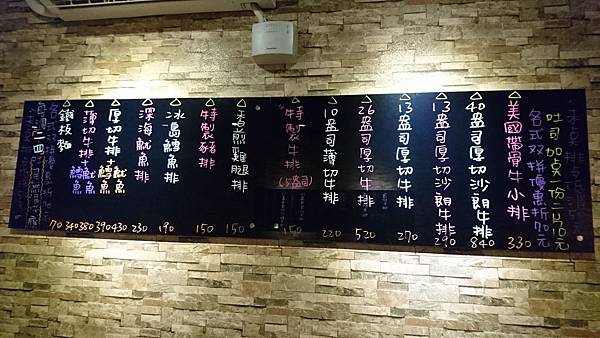 吐司加点一份二片10元
各式双拼優惠折10元
美國帶骨牛小排 330
40盎司厚切沙朗牛排 840
13盎司厚切沙朗牛排 290
13盎司厚切牛排 270
26盎司厚切牛排 520
10盎司薄切牛排 220
特製牛排(5盎司) 150
香煎雞腿排 150
特製豬排 150
冰島鱈魚排 190
深海魷魚排 230
厚切牛排+魷魚 430 鱈魚 390
薄切牛排+魷魚 380 鱈魚 340
鐵板麵 70